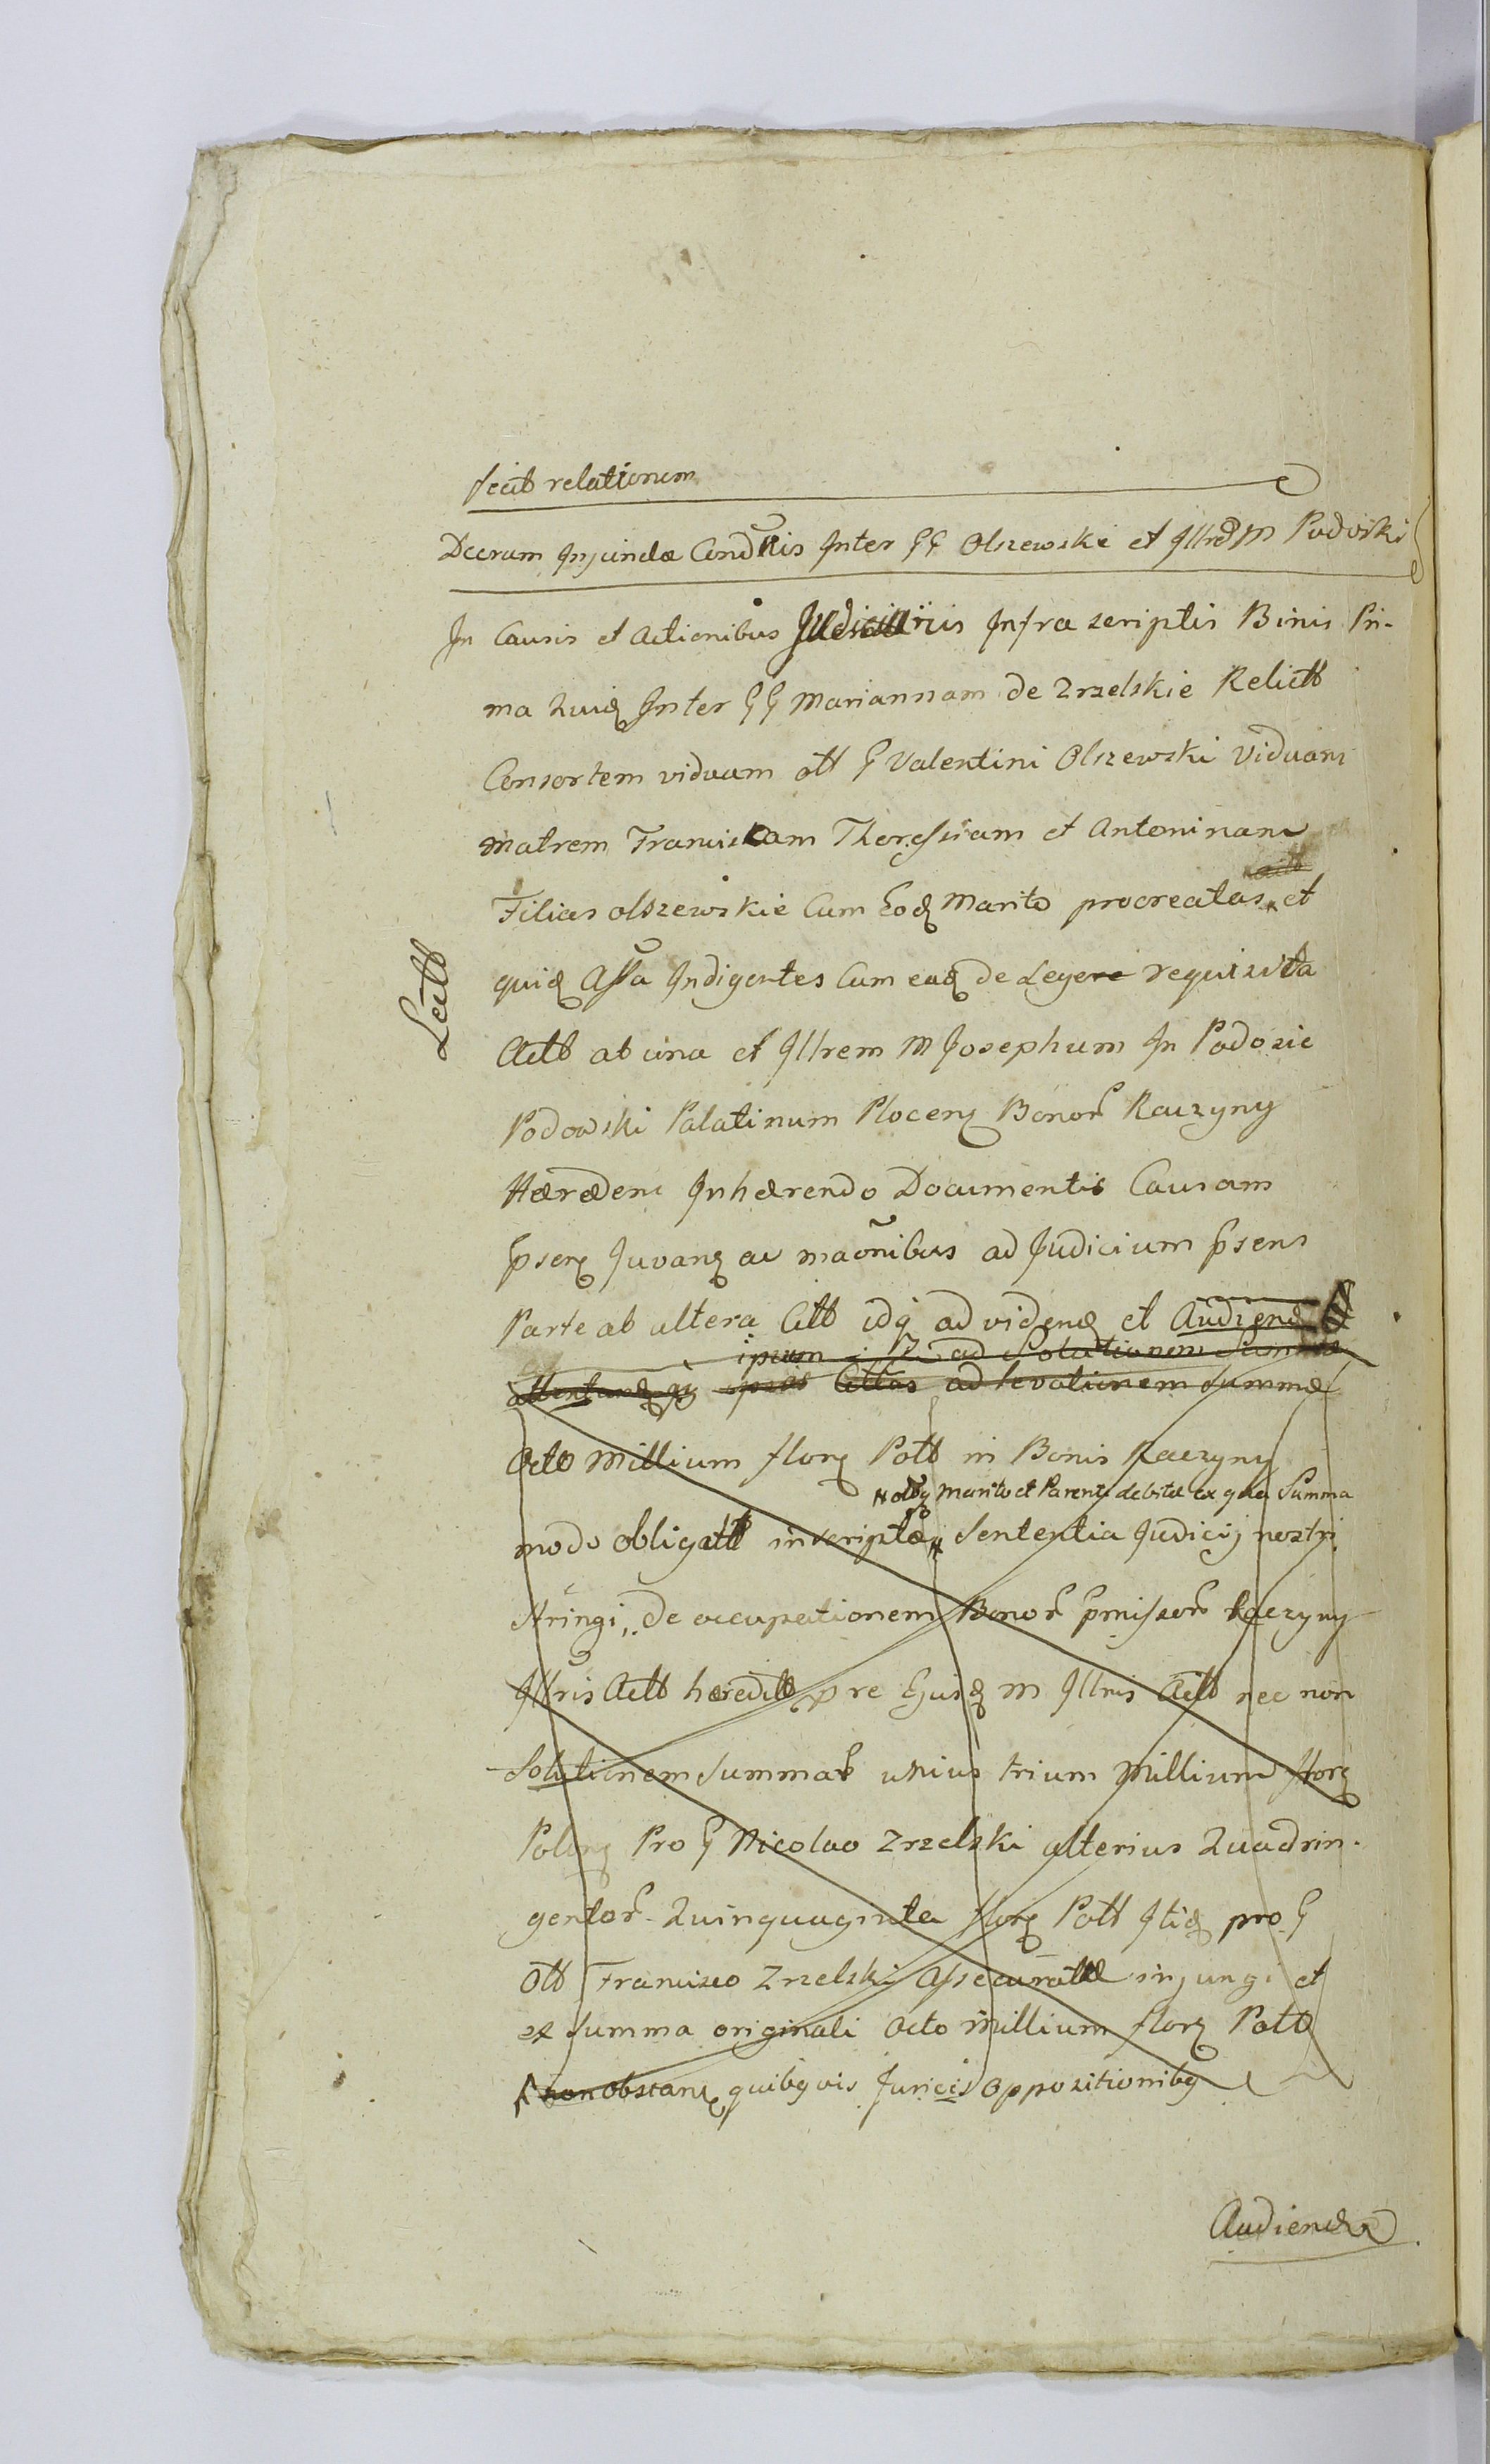 fecit relationem
Decrum Injunctæ Condnis Inter GG Olszewskie et Illrem M Podoski
In Causis et Actionibus Infra scriptis Binis Pri-
ma Quidę Inter GG Mariannam de Zrzelskie Relictt
Consortem viduam ott G Valentini Olszewski Viduam
Matrem Franciscam Theressiam et Antoninam
Filias Olszewskie Cum Eodę Marito procreatas et
quidę Assa Indigentes Cum eadę de Lege requisita
Actt ab una et Illrem M Josephum In Podosie
Podoski Palatinum Plocenę Bonor Raczyny
Hæredem Inhærendo Documentis Causam
pserę Juvanę ac maonibus ad Judicium psens
Parte ab altera Citt idq ad videndę et Audiendę
ipsum ad Solutionem Summæ
ipsas Cittas ad levationem summæ
Octo Millium florę Poll in Bonis Raczyny
ottq Marito et Parenti debitæ ex qua Summa
modo obligatt inscriptæ Sententia Judicij nostri
stringi, De occupationem Bonor pmissor Raczyny
Illris Actt hæreditt pre Ejusdę M Illris Actt nec non
Solutionem Summar unius trium Millium florę
Polonę Pro G Nicolao Zrzelski alterius Quadrin-
gentor Quinquaginta florę Poll Itidę pro G
Ott Francisco Zrzelski Assecuratæ injungi et
ex summa originali Octo Millium florę Poll
non obstanę quibqvis Juricis oppositionibq
Audiendę
Lectt